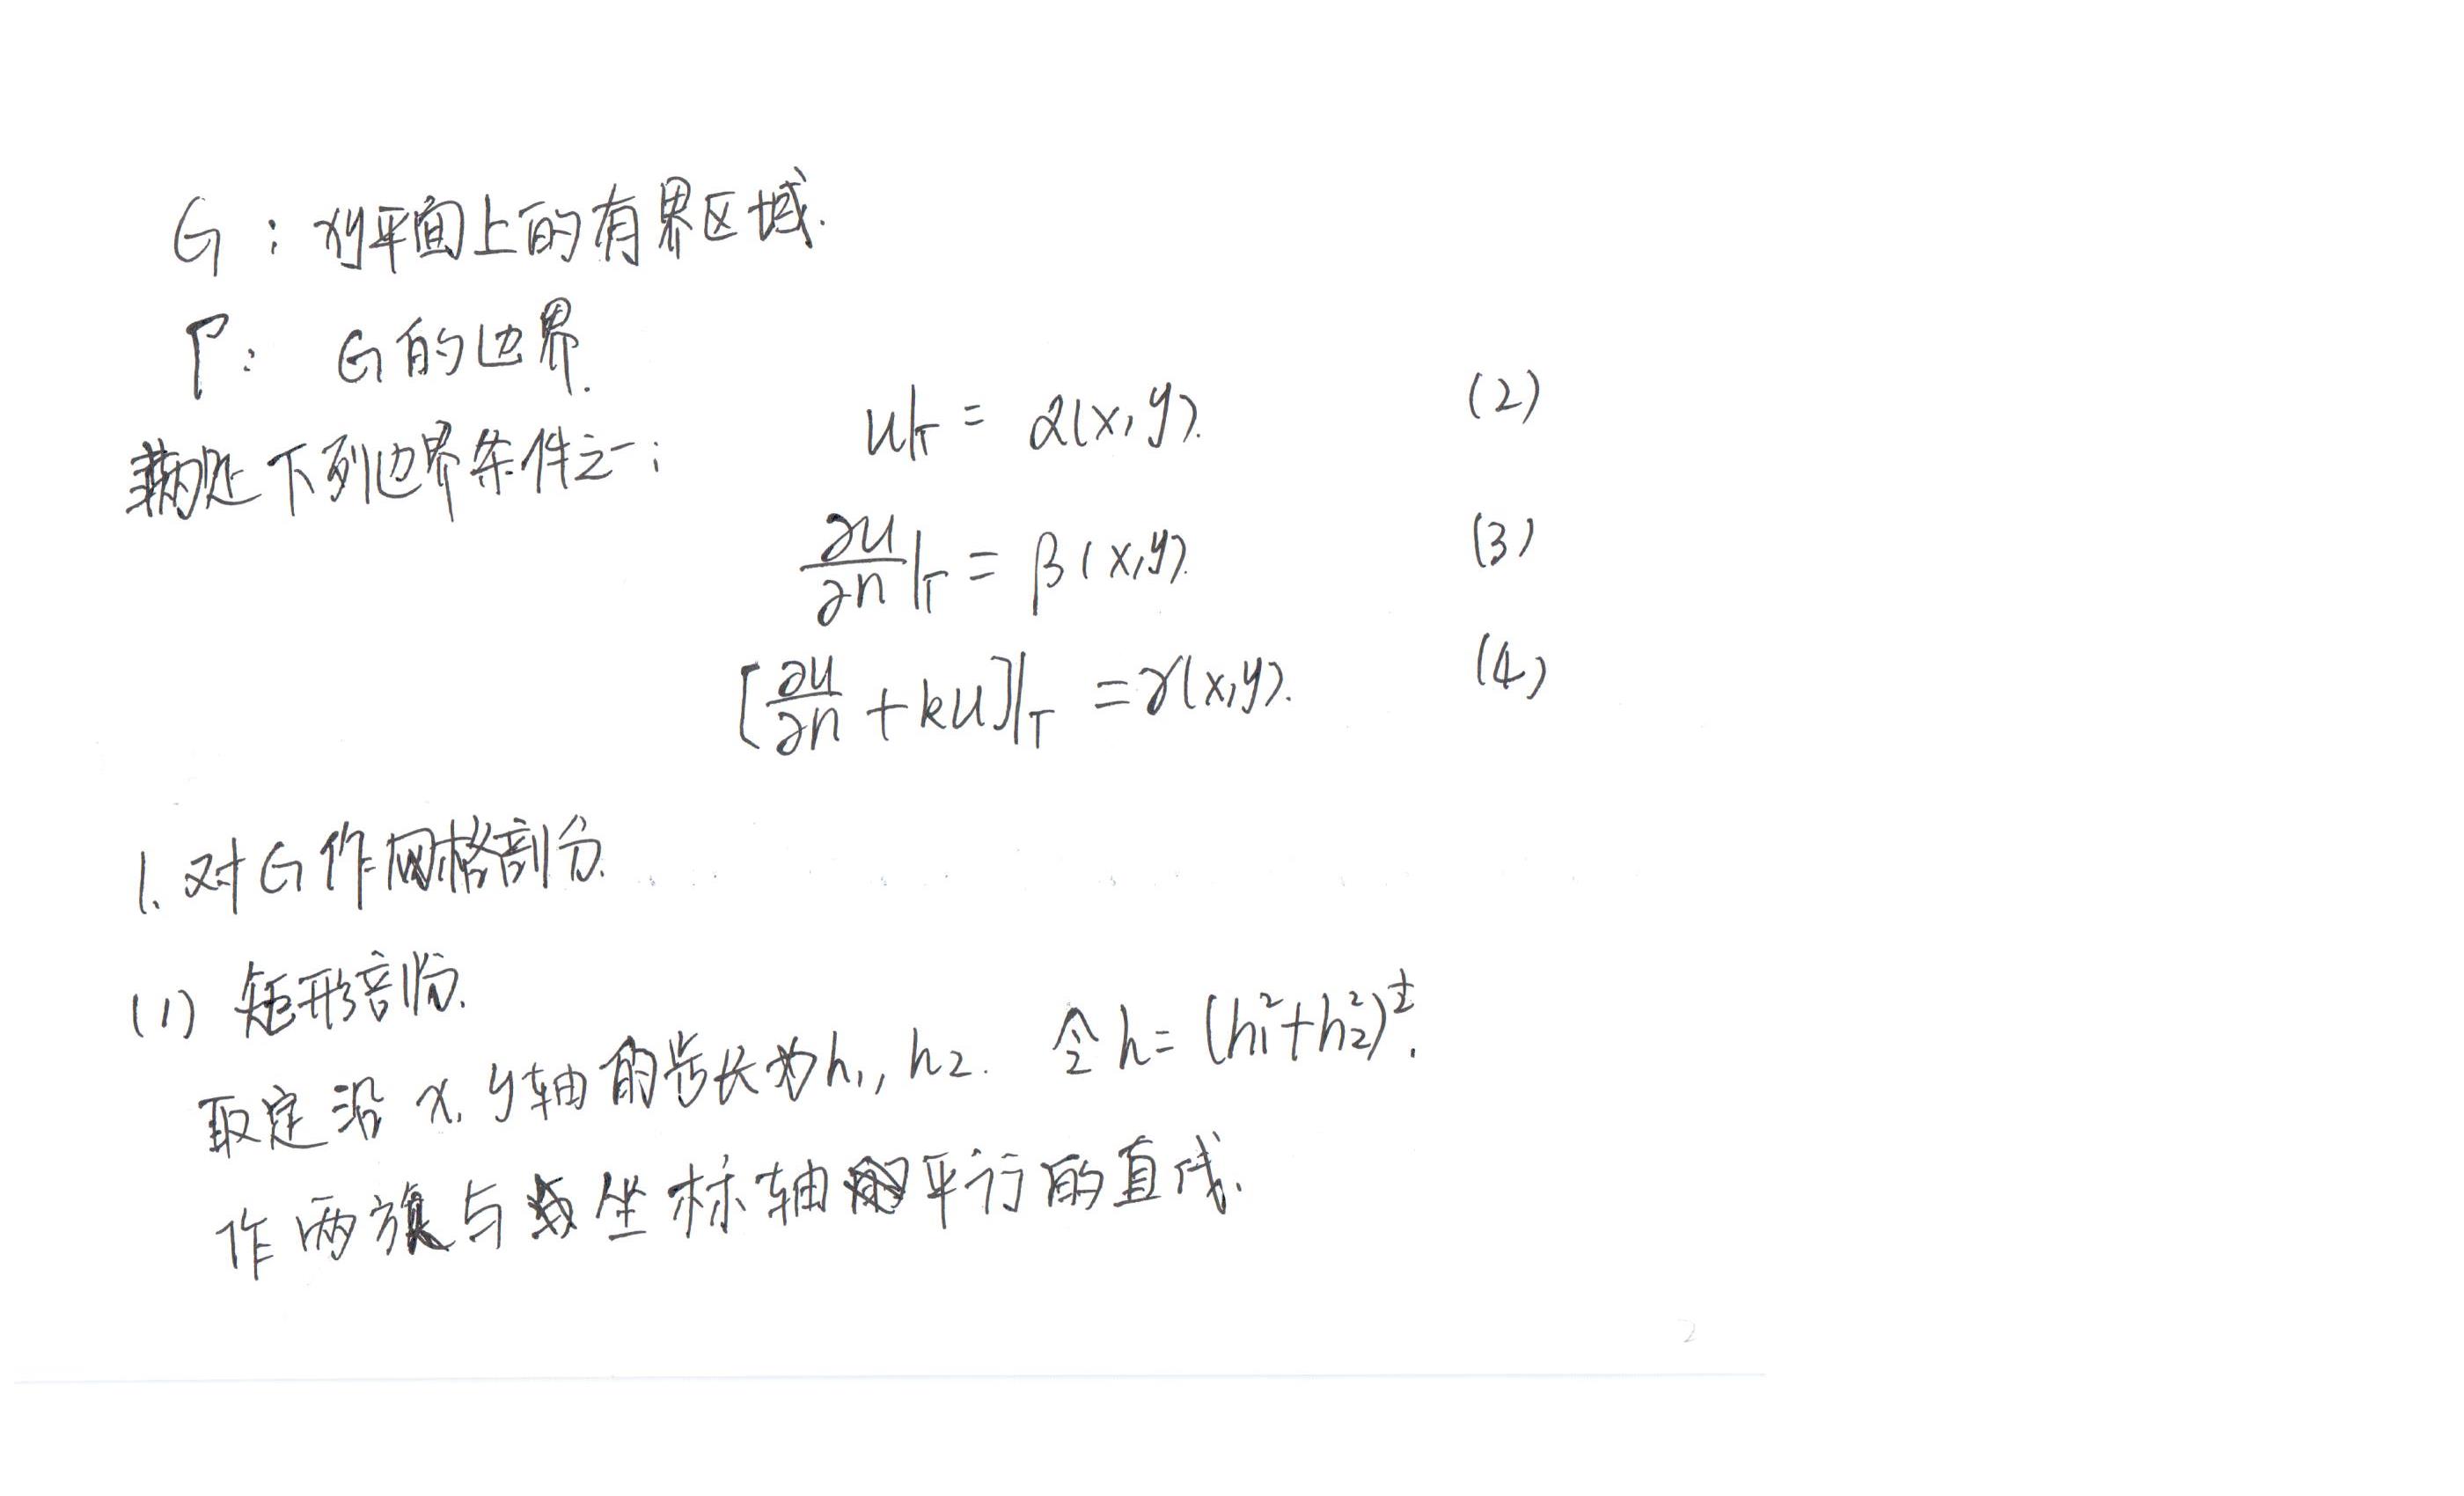 G：xy平面上的有界区域.
Γ： G的边界.
u|Γ = α(x, y). (2)
满足下列边界条件之一：
∂u/∂n|Γ = β(x,y). (3)
[∂u/∂n + ku]|Γ = γ(x,y). (4)
1. 对G作网格剖分.
(1) 矩形剖分.
取定沿 x, y轴的步长为h₁, h₂. 令 h = (h₁²+h₂²)^½.
作两族与坐标轴平行的直线.
2